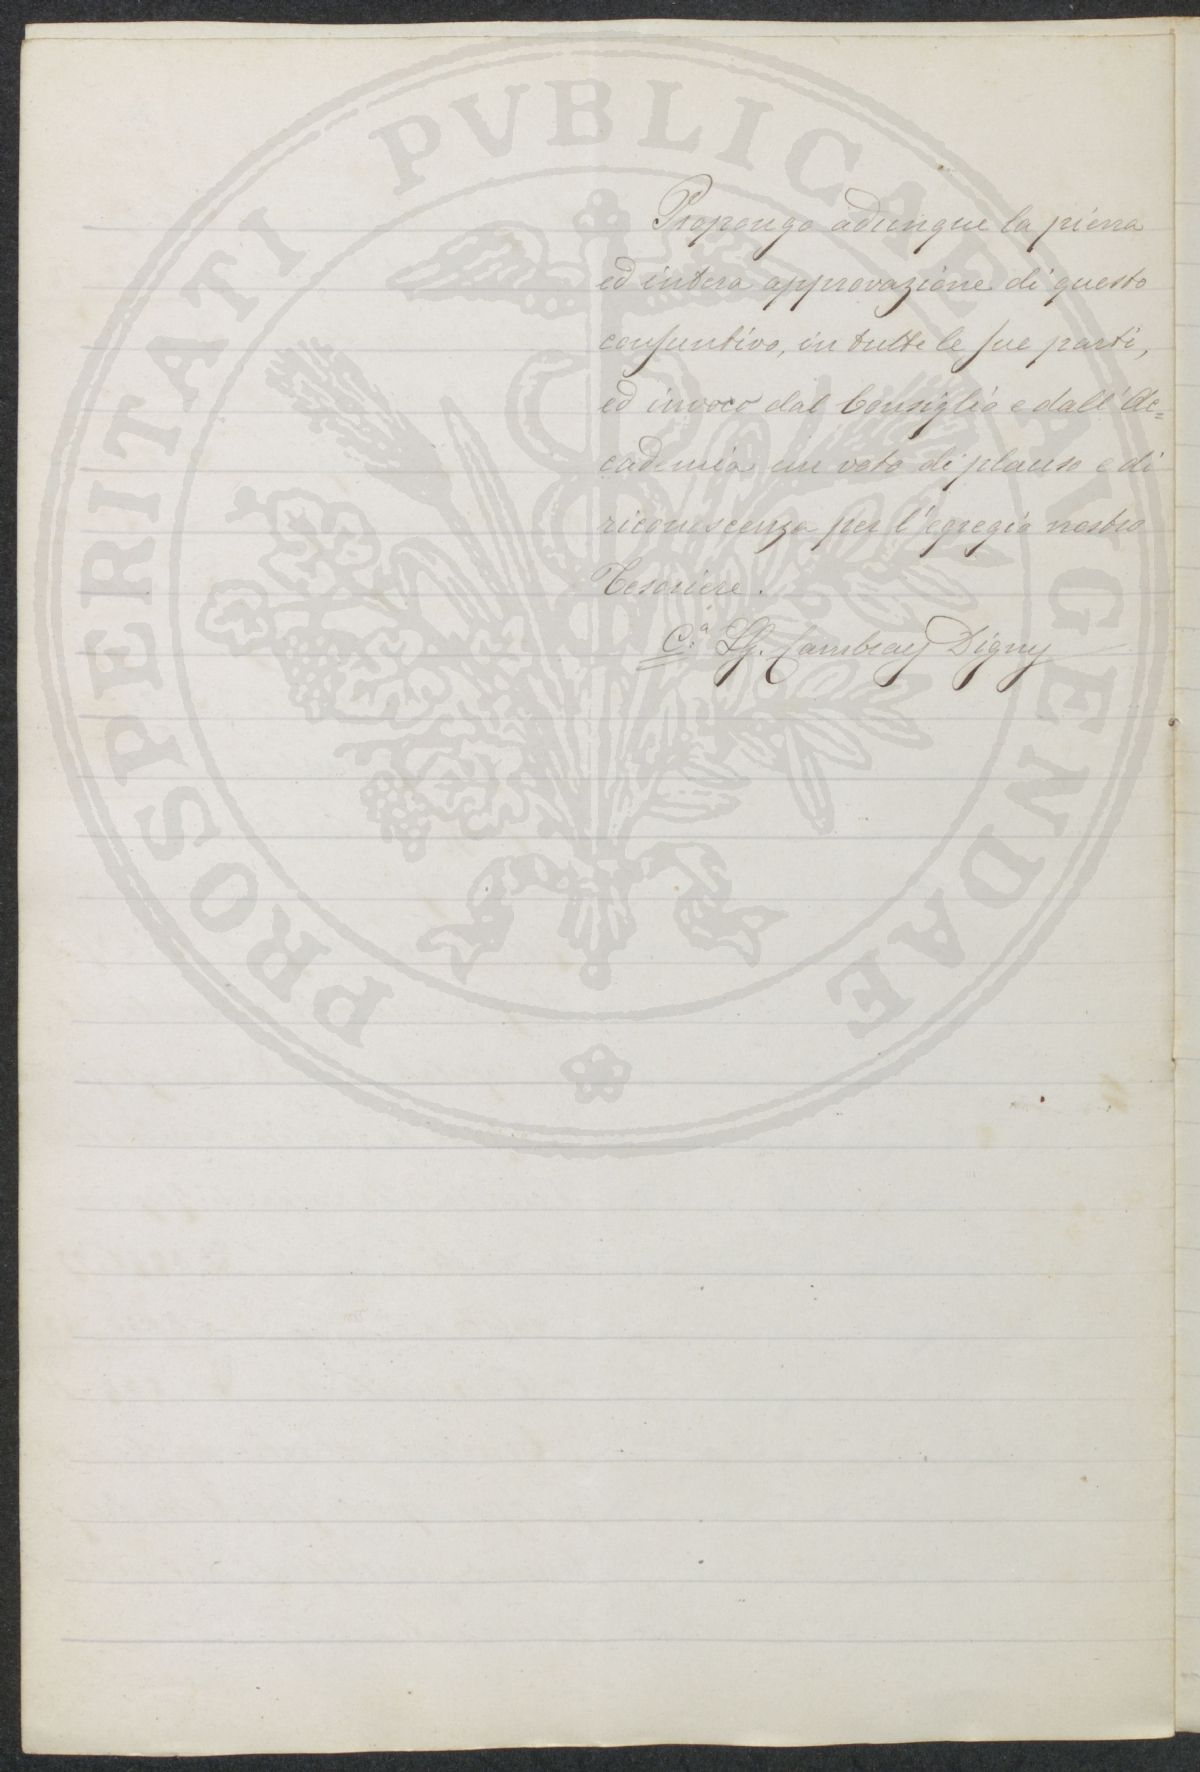 PROSPERITATI PVBLICAE AVGENDAE
Propongo adunque la piena
ed intera approvazione di questo
consuntivo, in tutte le sue parti,
ed invoco dal Consiglio e dall'Ac=
cademia un voto di plauso e di
riconoscenza per l'egregio nostro
Tesoriere.
C.ª Lg. Cambray Digny